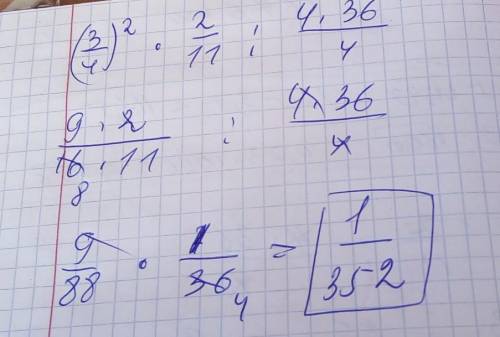 (3/4)² · 2/11 : 4·36/4
9·2/16·11 : 4·36/4
8
9/88 · 1/36 = 1/352
4